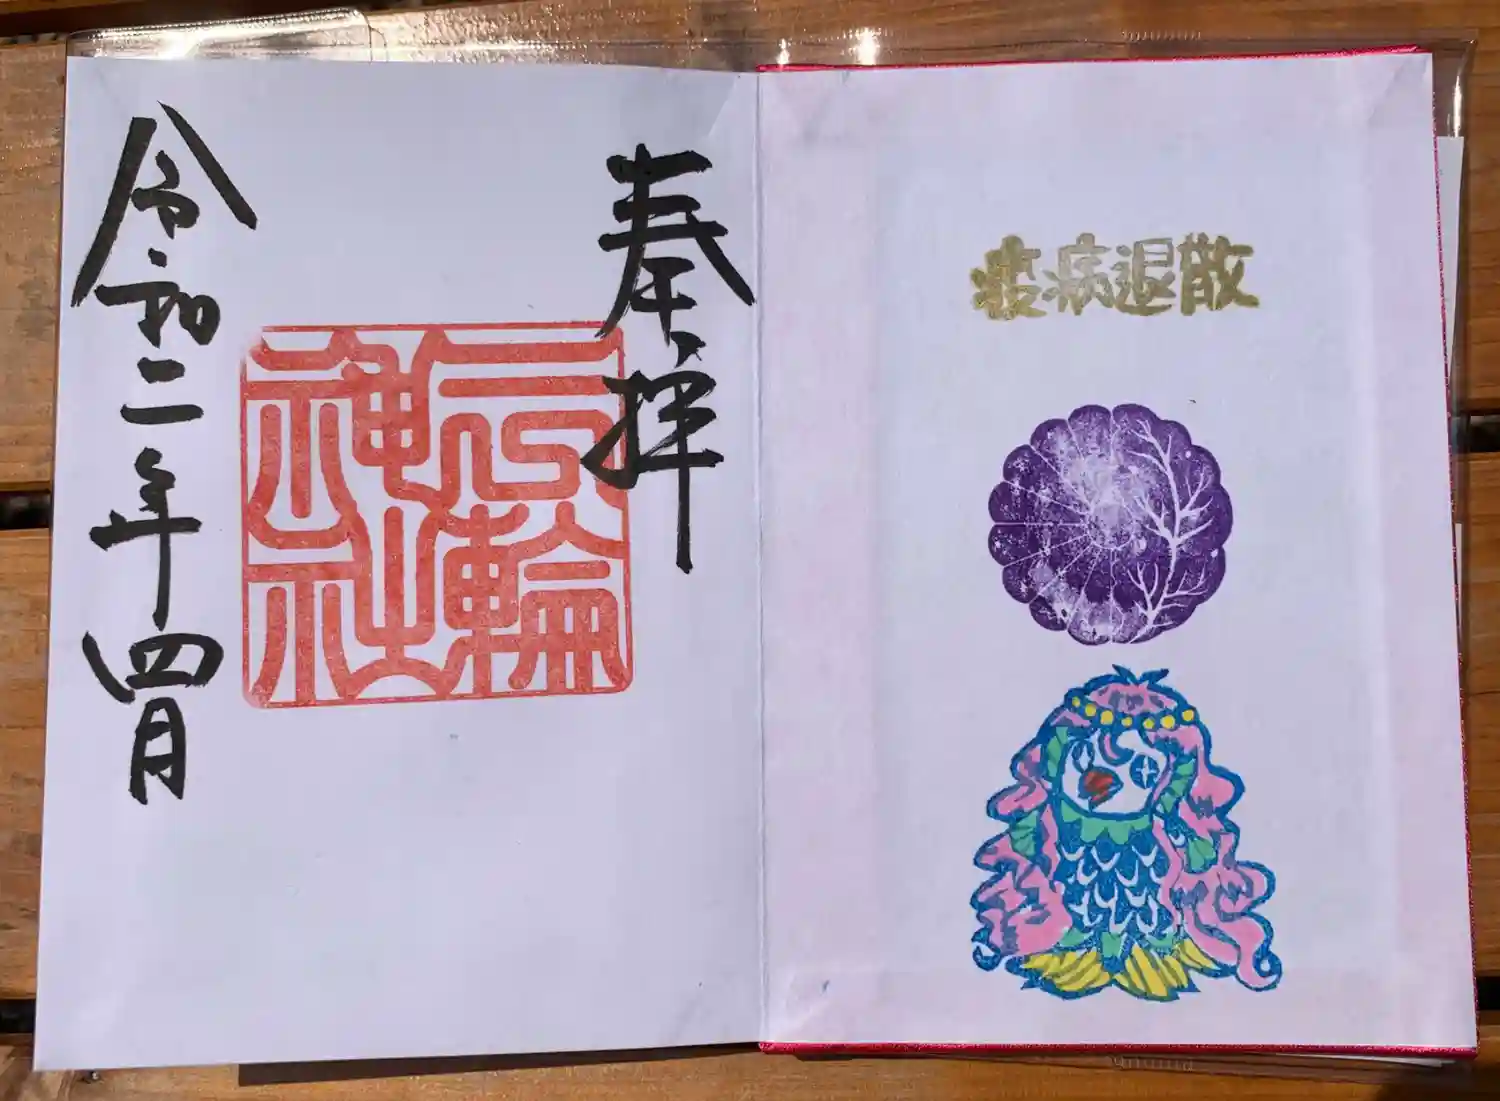 疫病退散
奉拝
三輪
神社
令和二年四月